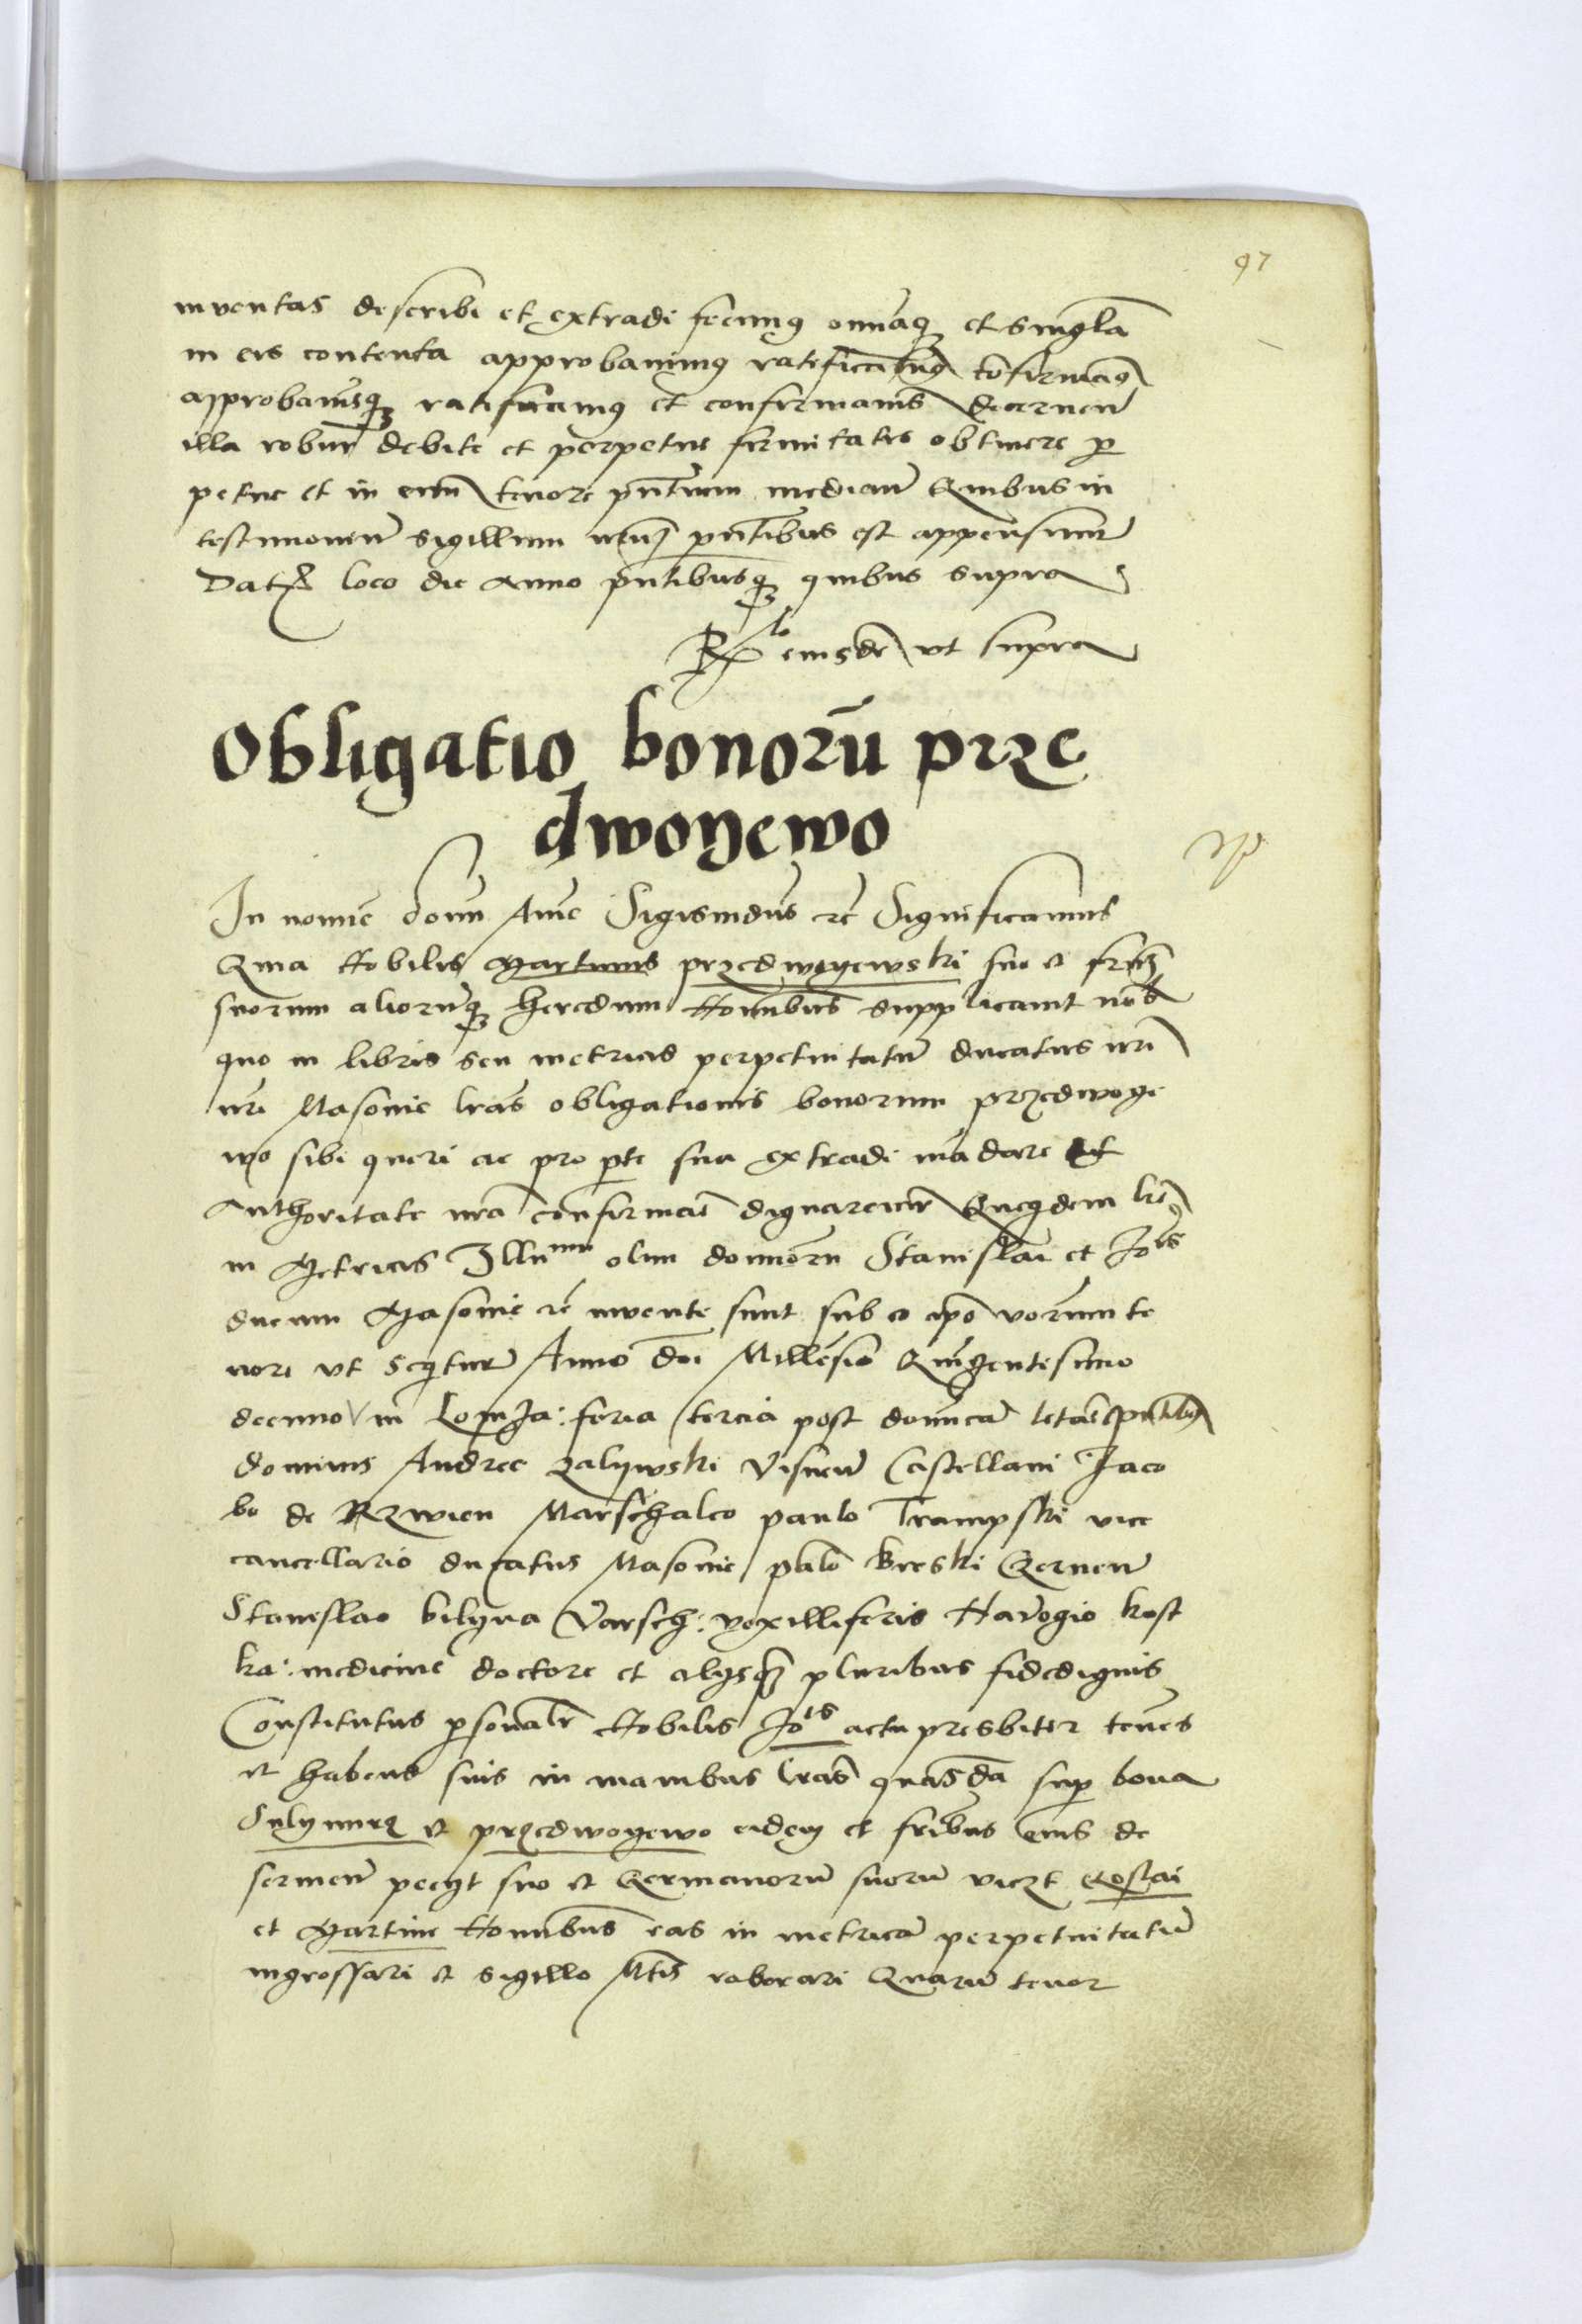 97
inventas describi et extradi fecimus omniaque et singula
in eis contenta approbavimus ratificavimus confirmavimus
approbamusque ratificamus et confirmamus decernentes
illa robur debite et perpetue firmitatis obtinere per
petue et in evum tenore presentium mediante Quibus in
testimonium sigillum nostrum presentibus est appensum
Datum loco die anno presentibusque quibus supra
Relatio eiusdem ut supra
Obligatio bonorū prze
dwoyewo
In nomine domini Amen Sigismundus etc Significamus
Quia Nobilis Martinus przedwoyewski suo et fratrum
suorum aliorumque heredum Nominibus supplicavit nobis
quo in libris seu metricis perpetuitatum ducatus nri
nri Masovie lras obligationis bonorum przedwoye
wo sibi queri ac pro parte sua extradi mandare et
authoritate nra confirmare dignaremur Quequidem lre
in Metricis Illmorum olim dominorum Stanislai et Jois
ducum Masovie etc invente sunt sub eo ipso verborum te
nore ut sequitur Anno dni Millesimo Quingentesimo
decimo in Lomza: feria tercia post dominicam letare presentibus
dominis Andree zalywski Visnensi Castellani Jaco
bo de Rzwien Marschalco paulo Trampski vice
cancellario ducatus Masovie Breski Cernensi
Stanislao bilyna Varsch: vexilliferis kost
ka: medicine doctore et alijsque pluribus fidedignis
Constitutus personaliter Nobilis Jois actu presbiter tenens
et habens suis in manibus lras quasdam super bona
Sulymirz et przedwoyewo eidem et fribus eius de
servien pecijt suo et Germanorum suorum vicz
et Martini Nominibus eas in metricam perpetuitatum
ingrossari et sigillo Mtis roborari Quarum tenor